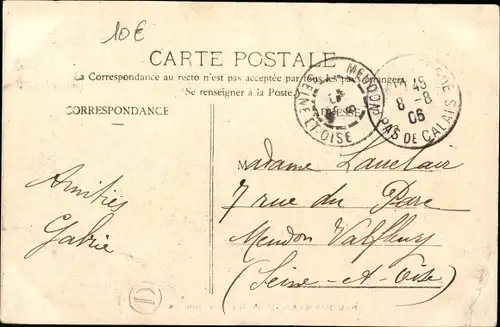 10€
CARTE POSTALE
La Correspondance au recto n'est pas acceptée par tous les pays étrangers
(Se renseigner à la Poste)
CORRESPONDANCE
ADRESSE
MEUDON
SEINE ET OISE
45
8-8
06
PAS DE CALAIS
Madame Lauclair
7 rue du Parc
Meudon Valfleury
(Seine-et-Oise)
Amitiés
Gabrie
D